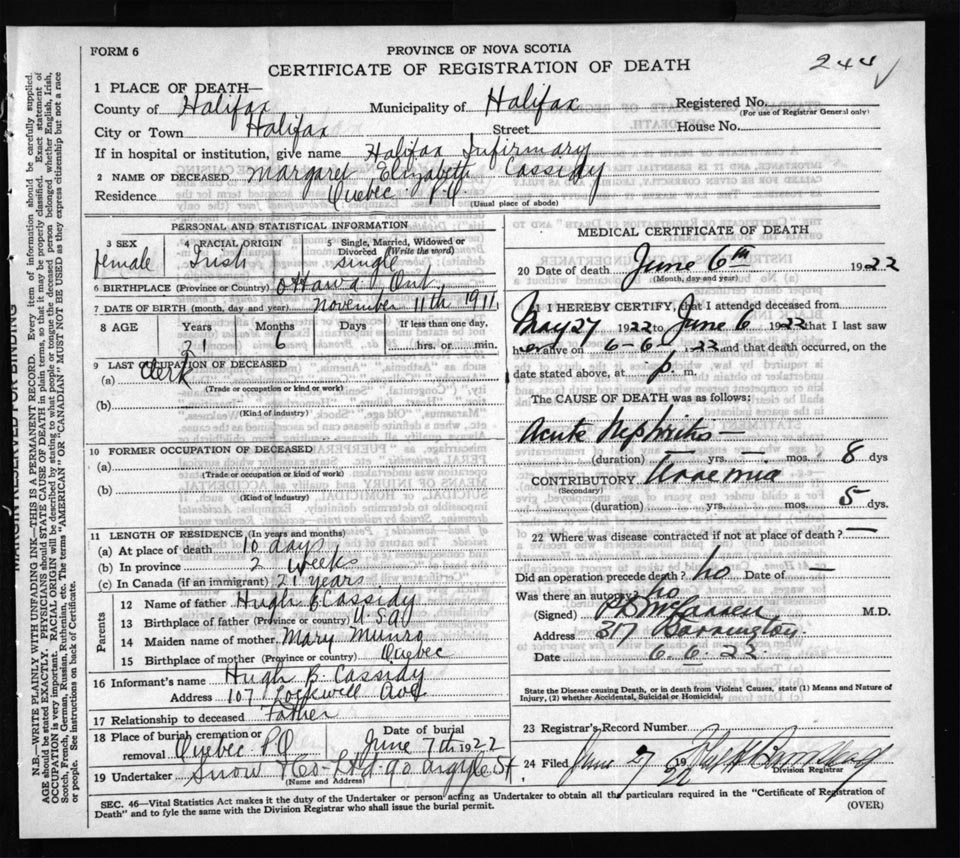 244 ✓
FORM 6
PROVINCE OF NOVA SCOTIA
CERTIFICATE OF REGISTRATION OF DEATH
1 PLACE OF DEATH—
County of Halifax Municipality of Halifax Registered No.
(For use of Registrar General only)
City or Town Halifax Street House No.
If in hospital or institution, give name Halifax Infirmary
2 NAME OF DECEASED Margaret Elizabeth Cassidy
Residence Quebec P.Q.
(Usual place of abode)
PERSONAL AND STATISTICAL INFORMATION
3 SEX 4 RACIAL ORIGIN 5 Single, Married, Widowed or Divorced (Write the word)
female Irish single
6 BIRTHPLACE (Province or Country) Ottawa Ont
7 DATE OF BIRTH (month, day and year) November 11th 1911
8 AGE Years Months Days If less than one day,
21 6 hrs. or min.
9 LAST OCCUPATION OF DECEASED
(a) Clerk
(Trade or occupation or kind or work)
(b)
(Kind of industry)
10 FORMER OCCUPATION OF DECEASED
(a)
(Trade or occupation or kind of work)
(b)
(Kind of industry)
11 LENGTH OF RESIDENCE (In years and months)
(a) At place of death 10 days
(b) In province 2 weeks
(c) In Canada (if an immigrant) 21 years
Parents
12 Name of father Hugh B Cassidy
13 Birthplace of father (Province or country) U.S.A
14 Maiden name of mother Mary Munro
15 Birthplace of mother (Province or country) Quebec
16 Informant's name Hugh B. Cassidy
Address 107 Lockwell Ave
17 Relationship to deceased Father
18 Place of burial cremation or removal Quebec P.Q Date of burial June 7th 1922
19 Undertaker Snow & Co. Ltd. 90 Argyle St
(Name and Address)
MEDICAL CERTIFICATE OF DEATH
20 Date of death June 6th 1922
(Month, day and year)
21 I HEREBY CERTIFY, that I attended deceased from
May 27 1922 to June 6 1922 that I last saw
her alive on 6-6 22 and that death occurred, on the
date stated above, at p. m.
The CAUSE OF DEATH was as follows:
Acute Nephritis —
(duration) — yrs. — mos. 8 dys
CONTRIBUTORY Uraemia
(Secondary)
(duration) yrs. mos. 5 dys.
22 Where was disease contracted if not at place of death? —
Did an operation precede death? no Date of —
Was there an autopsy? no
(Signed) M.D.
Address 317 Barrington.
Date 6.6.22
State the Disease causing Death, or in death from Violent Causes, state (1) Means and Nature of Injury, (2) whether Accidental, Suicidal or Homicidal.
23 Registrar's Record Number
24 Filed June 7 1922
Division Registrar
SEC. 46—Vital Statistics Act makes it the duty of the Undertaker or person acting as Undertaker to obtain all the particulars required in the "Certificate of Registration of
Death" and to fyle the same with the Division Registrar who shall issue the burial permit. (OVER)
MARGIN RESERVED FOR BINDING
N.B.—WRITE PLAINLY WITH UNFADING INK—THIS IS A PERMANENT RECORD. Every item of information should be carefully supplied.
AGE should be stated EXACTLY. PHYSICIANS should STATE CAUSE OF DEATH in plain terms, so that it may be properly classified. Exact statement of
OCCUPATION is very important. RACIAL ORIGIN will be described by stating to what people or tongue the deceased person belonged whether English, Irish,
Scotch, French, German, Russian, Ruthenian, etc. The terms "AMERICAN" OR "CANADIAN" MUST NOT BE USED as they express citizenship but not a race
or people. See instructions on back of Certificate.